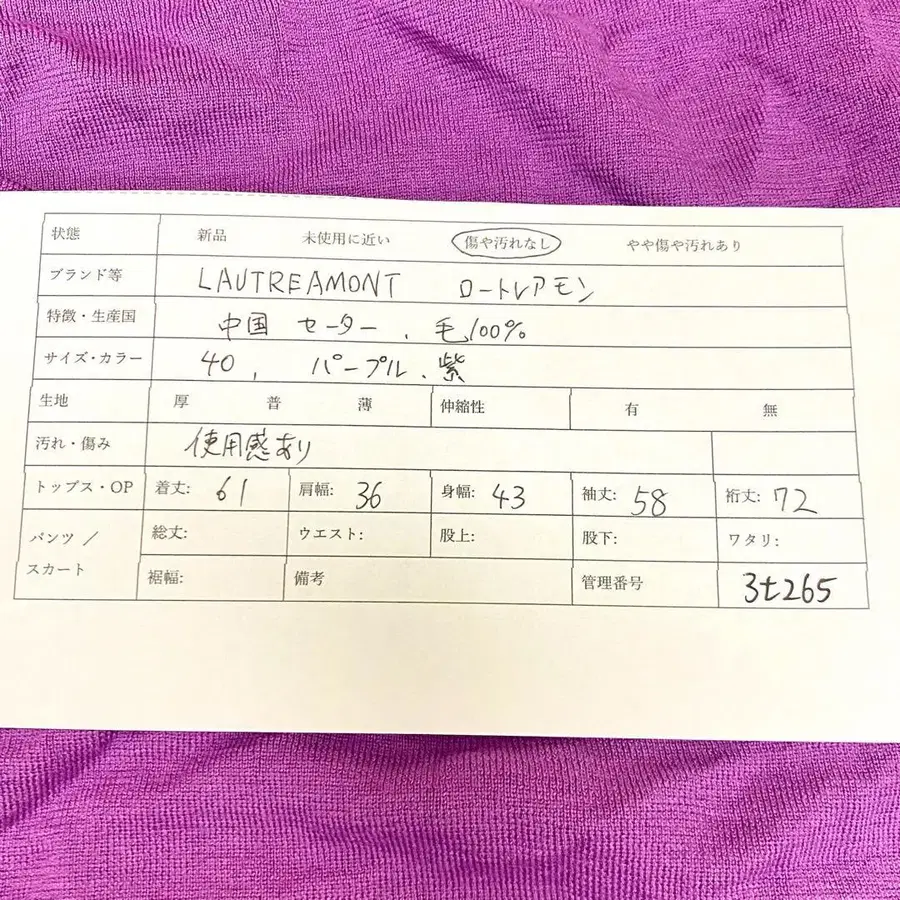 状態 新品 未使用に近い 傷や汚れなし やや傷や汚れあり
ブランド等 LAUTREAMONT ロートレアモン
特徴・生産国 中国 セーター、毛100%
サイズ・カラー 40, パープル、紫
生地 厚 普 薄 伸縮性 有 無
汚れ・傷み 使用感あり
トップス・OP 着丈: 61 肩幅: 36 身幅: 43 袖丈: 58 裄丈: 72
パンツ／ 総丈: ウエスト: 股上: 股下: ワタリ:
スカート 裾幅: 備考 管理番号 3t265